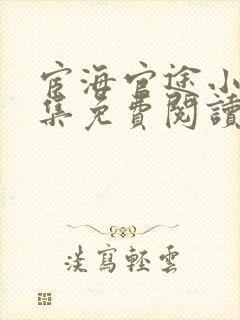 宦海官途小
集免費閱讀
淡寫輕雲